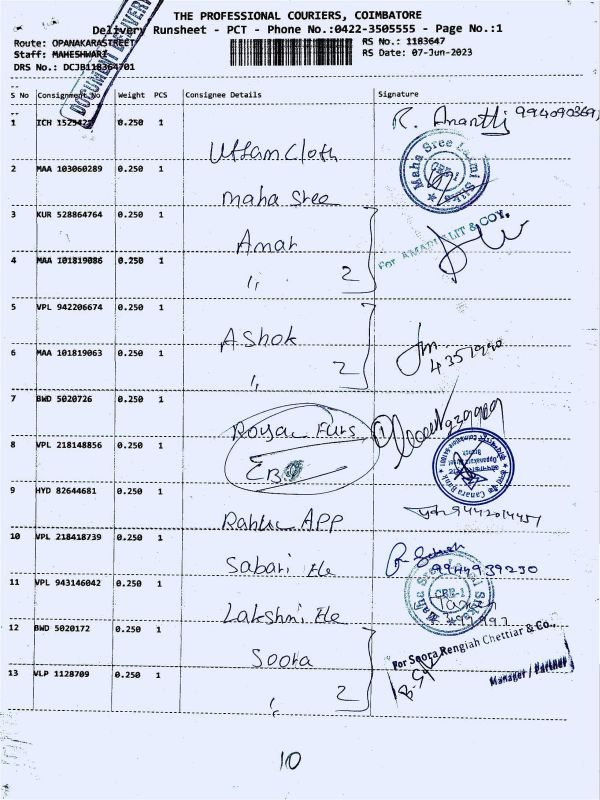 THE PROFESSIONAL COURIERS, COIMBATORE
Delivery Runsheet - PCT - Phone No.:0422-3505555 - Page No.:1
Route: OPANAKARASTREET
RS No.: 1183647
Staff: MAHESHWARI
RS Date: 07-Jun-2023
DRS No.: DCJB118364701
DOCUMENT DELIVERY
S No Consignment No Weight PCS Consignee Details Signature
1 ICH 0.250 1 Uttam Cloth R. Ananthi
2 MAA 103060289 0.250 1 Maha Sree
Maha Sree Laxmi Silks CBE-1
3 KUR 528864764 0.250 1 Amar
For & COY.
4 MAA 101819086 0.250 1 " 2
5 VPL 942206674 0.250 1 Ashok
6 MAA 101819063 0.250 1 " 2
7 BWD 5020726 0.250 1 Royal Furs 1
8 VPL 218148856 0.250 1
Canara Bank
9 HYD 82644681 0.250 1 APP 9442014451
10 VPL 218418739 0.250 1 Sabari Ele 9944939230
11 VPL 943146042 0.250 1 Lakshmi Ele
CBE-1
12 BWD 5020172 0.250 1 Soora
For Soora Rengiah Chettiar & Co.,
Manager / Partner
13 VLP 1128709 0.250 1 " 2
10